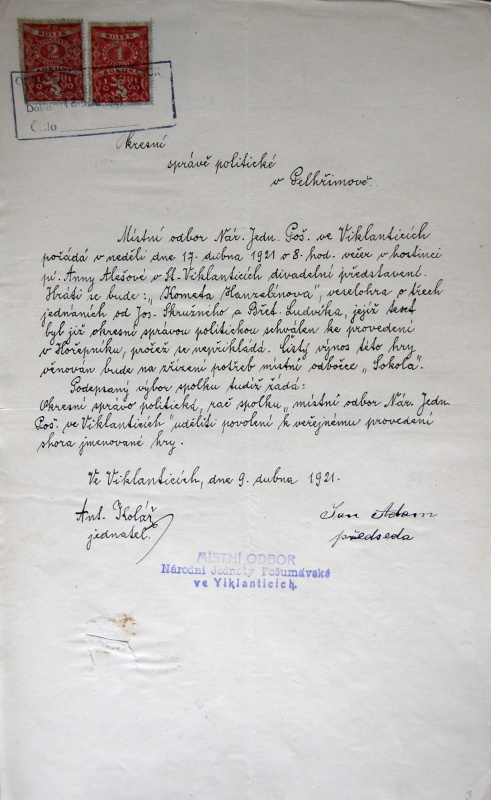 ČR
KOLEK
2
KORUNA
ČR
KOLEK
1
KORUNA
Došlo
Číslo
Okresní
správě politické
v Pelhřimově.
Místní odbor Nár. Jedn. Poš. ve Viklanticích
pořádá v neděli dne 17. dubna 1921 o 8. hod. večer v hostinci
pí. Anny Alešové v St. Viklanticích divadelní představení.
Hráti se bude: „Kometa Hanzelínova", veselohra o třech
jednáních od Jos. Skružného a Břet. Ludvíka, jejíž text
byl již okresní správou politickou schválen ke provedení
v Hořepníku, pročež se nepřikládá. Čistý výnos této hry
věnován bude na zřízení potřeb místní odbočce „Sokola".
Podepsaný výbor spolku tudíž žádá:
Okresní správo politická, rač spolku „místní odbor Nár. Jedn.
Poš. ve Viklanticích" uděliti povolení k veřejnému provedení
shora jmenované hry.
Ve Viklanticích, dne 9. dubna 1921.
Ant. Kolář
jednatel.
Jan Adam
předseda
MÍSTNÍ ODBOR
Národní Jednoty Pošumavské
ve Viklanticích.